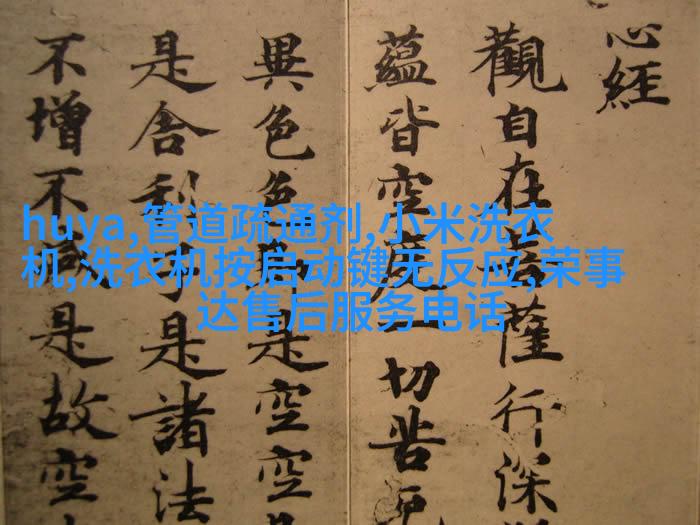 心經
觀自在菩薩行深
蘊皆空度一切苦厄
異色色即是空空
是舍利子是諸法
不增不減是故空
huya,管道疏通剂,小米洗衣
机,洗衣机按启动键无反应,荣事
达售后服务电话